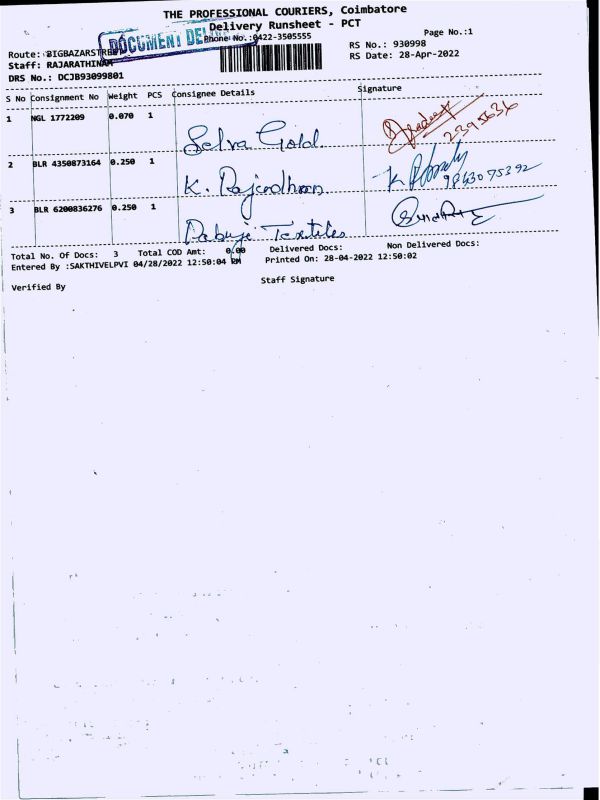 THE PROFESSIONAL COURIERS, Coimbatore
Delivery Runsheet - PCT
Page No.:1
DOCUMENT DEL
Phone No.:0422-3505555
Route: BIGBAZARSTREET
RS No.: 930998
Staff: RAJARATHINAM
RS Date: 28-Apr-2022
DRS No.: DCJB93099801
S No Consignment No Weight PCS Consignee Details Signature
1 NGL 1772209 0.070 1 Selva Gold.
2395636
2 BLR 4350873164 0.250 1 K.
K 9843075392
3 BLR 6200836276 0.250 1 Textiles
Total No. Of Docs: 3 Total COD Amt: 0.00 Delivered Docs: Non Delivered Docs:
Entered By :SAKTHIVELPVI 04/28/2022 12:50:04 PM Printed On: 28-04-2022 12:50:02
Verified By Staff Signature